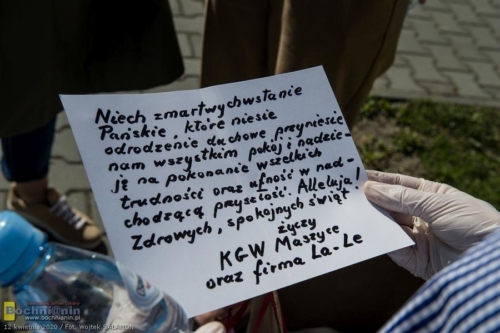 Niech zmartwychwstanie
Pańskie, które niesie
odrodzenie duchowe przyniesie
nam wszystkim pokój i nadzie-
ję na pokonanie wszelkich
trudności oraz ufność w nad-
chodzącą przyszłość. Alleluja!
Zdrowych, spokojnych świąt
życzy
KGW Maszyce
oraz firma La-Le
Bochni@nin
www.bochnianin.pl
12 kwietnia 2020 / Fot. Wojtek SALAMON